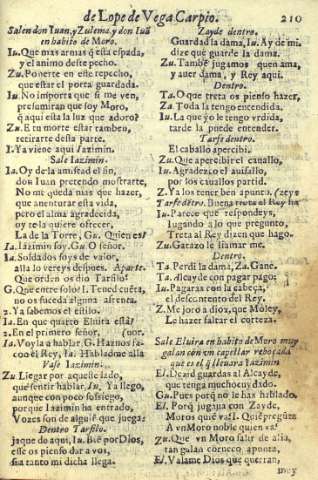 de Lope de Vega Carpio. 210
Salen don Iuan, y Zulema, y don Iuã
en habito de Moro.
Iu. Que mas armas q̃ esta espada,
y el animo deste pecho.
Zu. Ponerte en este repecho,
que estar el porta guardada.
Iu. No importa que si me ven,
presumiran que soy Moro,
q̃ aqui esta la luz que adoro?
Zu. E tu morte estar tambeu,
retirarte desta parte.
I. Ya viene aqui Iazimin.
Sale Iazimin.
Ia. Oy de la amistad el fin,
don Iuan pretendo mostrarte,
No me queda mas que hazer,
que auenturar esta vida,
pero el alma agradecida,
oy te la quiere ofrecer.
La de la Torre, Gu. Quien es?
Ia. Iazimin soy. Gu. O señor.
Ia. Soldados soys de valor,
alla lo vereys despues. Aparte.
Que orden os dio Tarfilo?
G. Que entre solo I. Tened cuẽta,
no os suceda alguna afrenta.
2. Ya sabemos el estilo.
Ia. En que quarto Eluira està?
2. En el primero señor, (uor.
Ia. Voyla a hablar, G. Haznos fa-
con el Rey, Ia. Habladme alla
Vase Iazimin.
Zu. Llegar por aquele lado,
que sentir hablar, Iu. Ya llego,
aunque con poco sossiego,
porque Iazimin ha entrado,
Vozes son de alguie que juega:
Dentro Tarfilo.
jaque do aqui, Iu. Biẽ por Dios,
esse os pienso dar a vos,
sia tanto mi dicha llega.
Zayde dentro.
Guardad la dama, Iu. Ay de mi.
dize que guarde la dama,
Zu. També jugamos quen ama,
y auer dama, y Rey aqui.
Dentro.
Ta. O que treta os pienso hazer,
Za. Toda la tengo entendida,
Iu. La que yo le tengo vrdida,
tarde la puede entender.
Tarfe dentro.
El caballo apercibi.
Zu. Que apercibir el cauallo,
Iu. Agradezco el auisallo,
por los cauallos partid.
Z. Ya los tener ben apunta. (zeys
Tarfe dẽtro. Buena treta al Rey ha
Iu. Parece que respondeys,
jugando a lo que pregunto,
Treta al Rey dizen que hago.
Zu. Garazo le llamar me.
Dentro.
Ta. Perdi la dama, Za. Gane.
Ta. Alcayde con pagar pago;
Iu. Pagaras con la cabeça,
el descontento del Rey.
Z. Me joro a dioz, que Moley,
Le hazer saltar el corteza.
Sale Eluira en habito de Moro muy
galan con vn capellar rebozada
que es el q̃ lleuara Iazimin
El. Dexad guardas al Alcayde,
que tenga mucho cuydado.
Gu. Pues porq̃ no le has hablado.
El. Porq̃ jugaua con Zayde,
Moros quiẽ va? I. Quiẽ pregũta
A vn Moro noble quien va?
Zu. Que vn Moro saltr de alla,
tan gulan corneço, apunta.
El. Valame Dios que querran,
mey